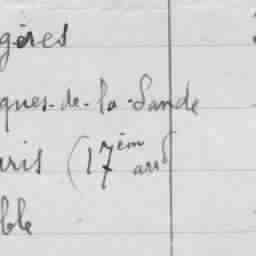 gères
ques-de-la-Lande
aris (17èm arrt
ble